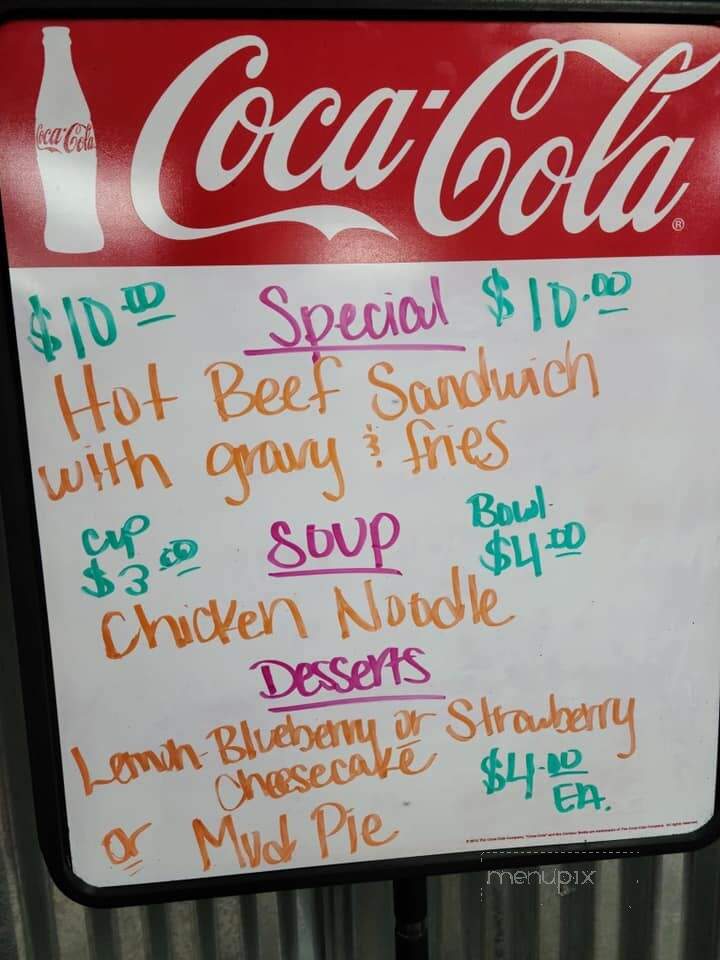 Coca-Cola
Coca-Cola ®
$10.00 Special $10.00
Hot Beef Sandwich
with gravy & fries
Cup Soup Bowl
$3.00 $4.00
Chicken Noodle
Desserts
Lemon-Blueberry or Strawberry
Cheesecake $4.00
or Mud Pie EA.
menupix